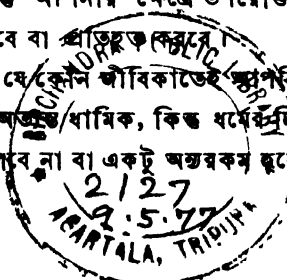 বে বা প্রতিহত করবে।
যে কোন জীবিকাতেই
ধার্মিক, কিন্তু ধর্মের
বে না বা একটু অন্যরকম হবে
CHANDRA PUBLIC LIBRARY
2127
9.5.77
AGARTALA, TRIPURA